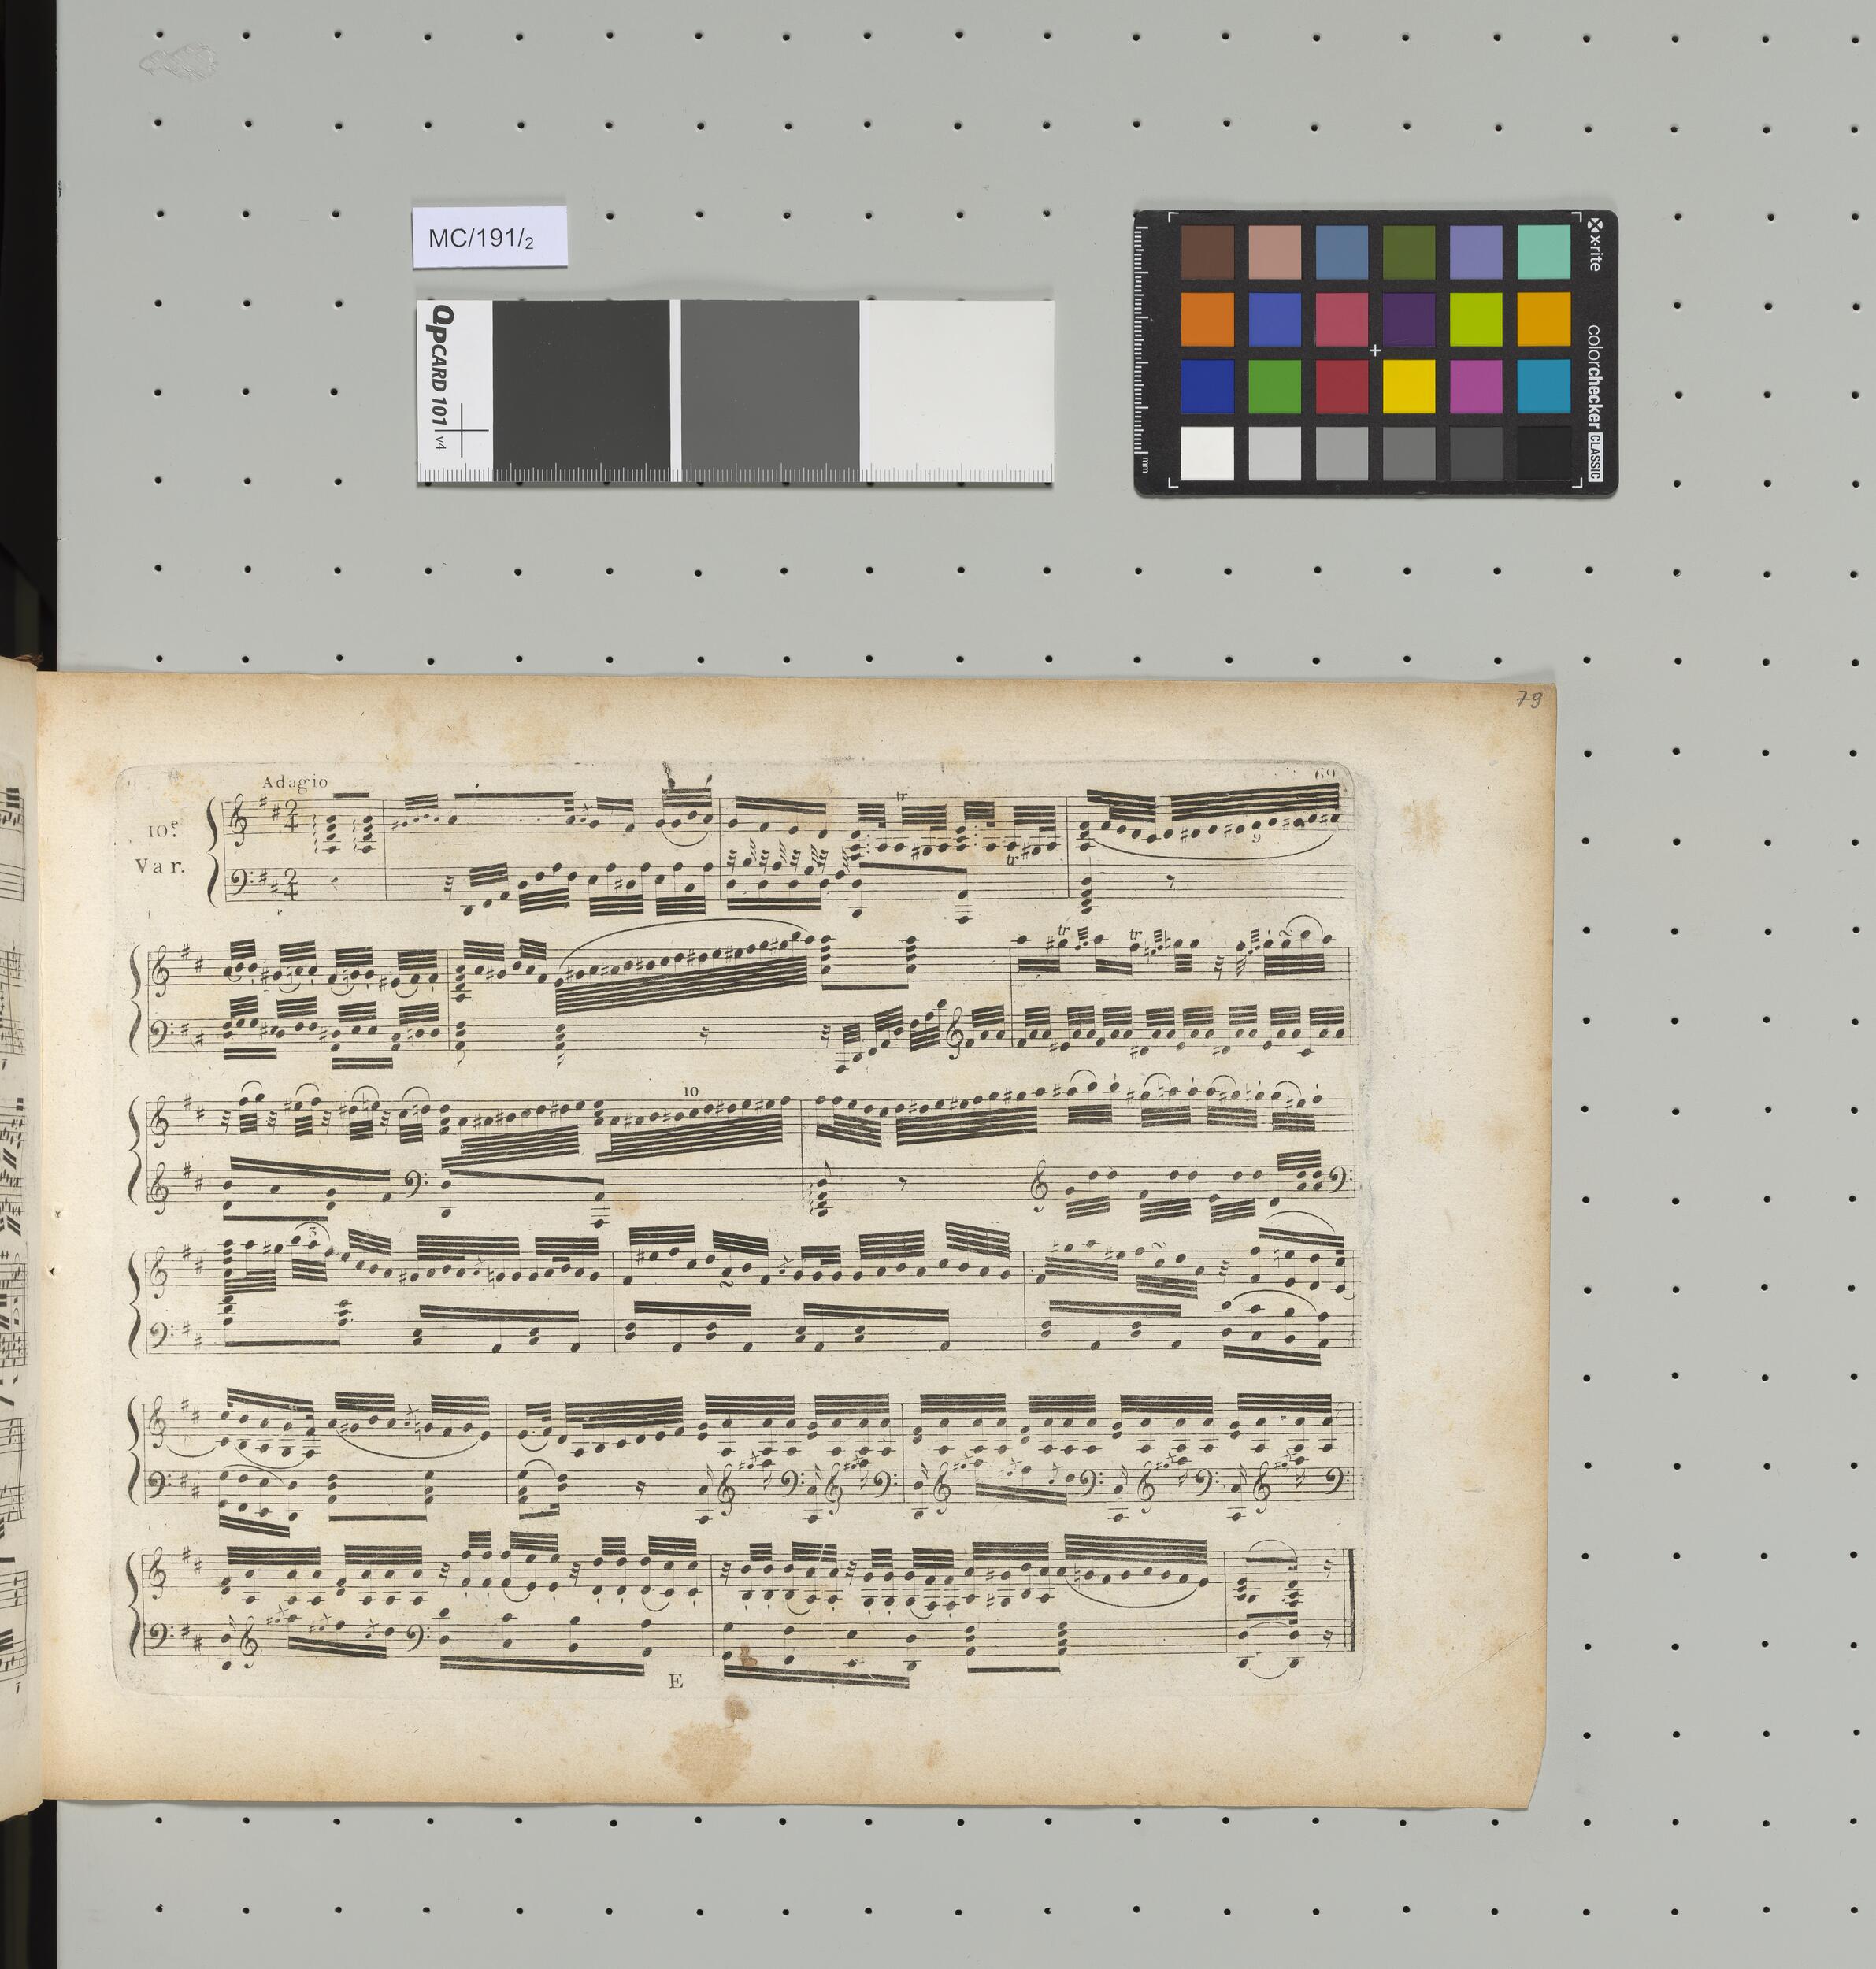 MC/191/2
QpCARD 101 v4
x·rite
colorchecker CLASSIC
mm
79
69
Adagio
10e.
Var.
2
4
2
4
tr
tr
9
tr
tr
10
3
E